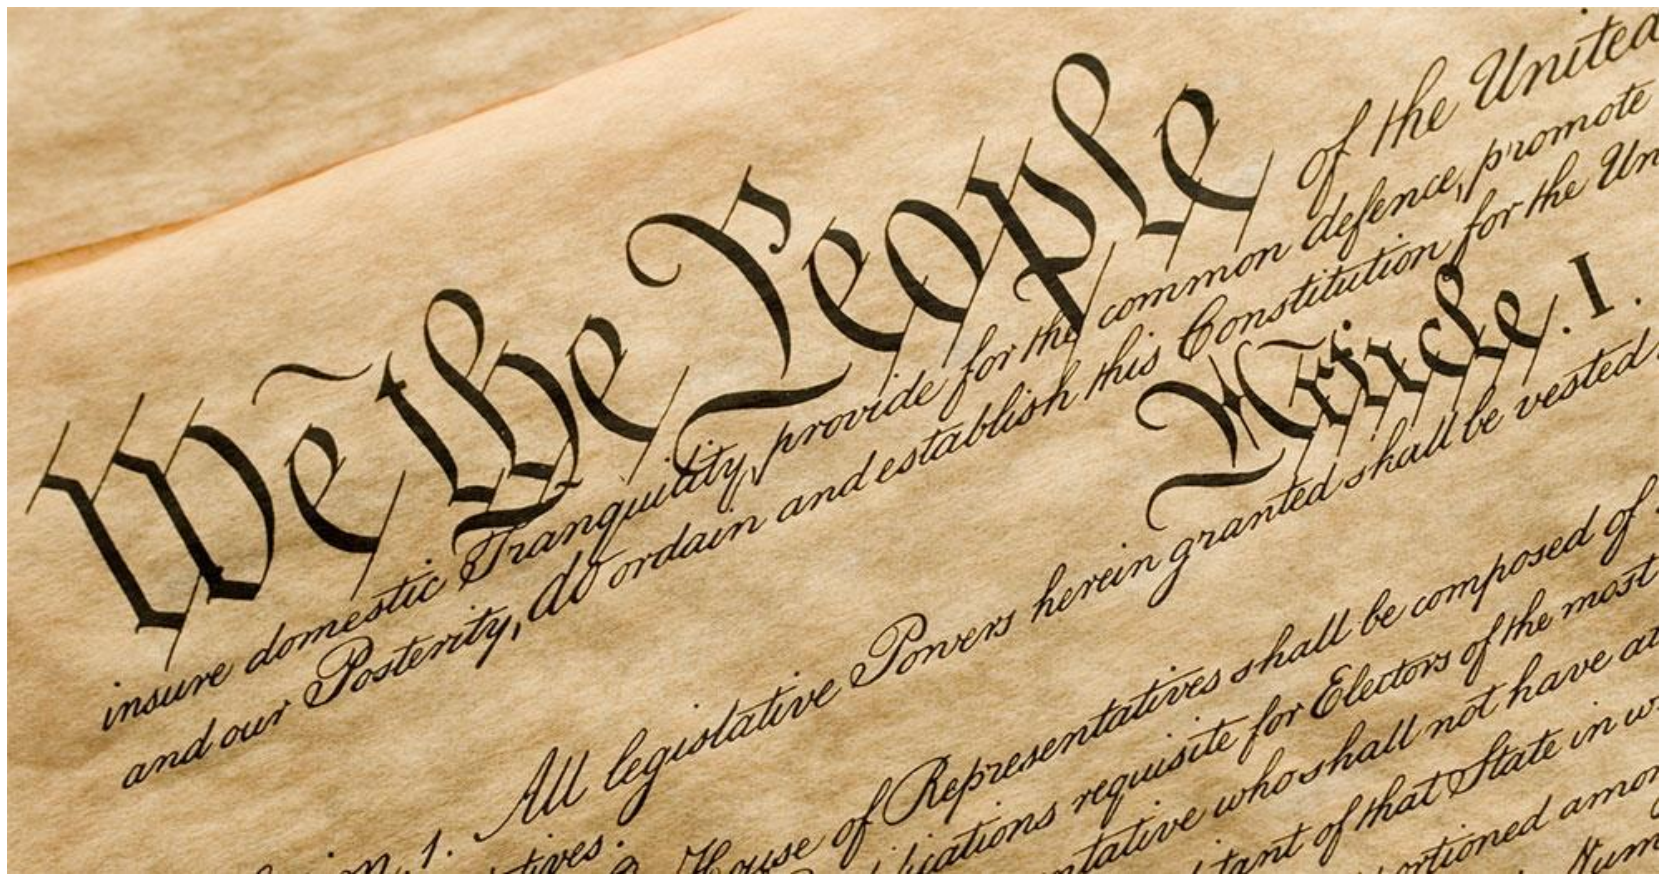 We the People of the United
insure domestic Tranquility, provide for the common defence, promote
and our Posterity, do ordain and establish this Constitution for the Un
Article. I.
1. All legislative Powers herein granted shall be vested
tives.
House of Representatives shall be composed of
ications requisite for Electors of the most
ntative who shall not have at
itant of that State in w
ortioned amon
Num